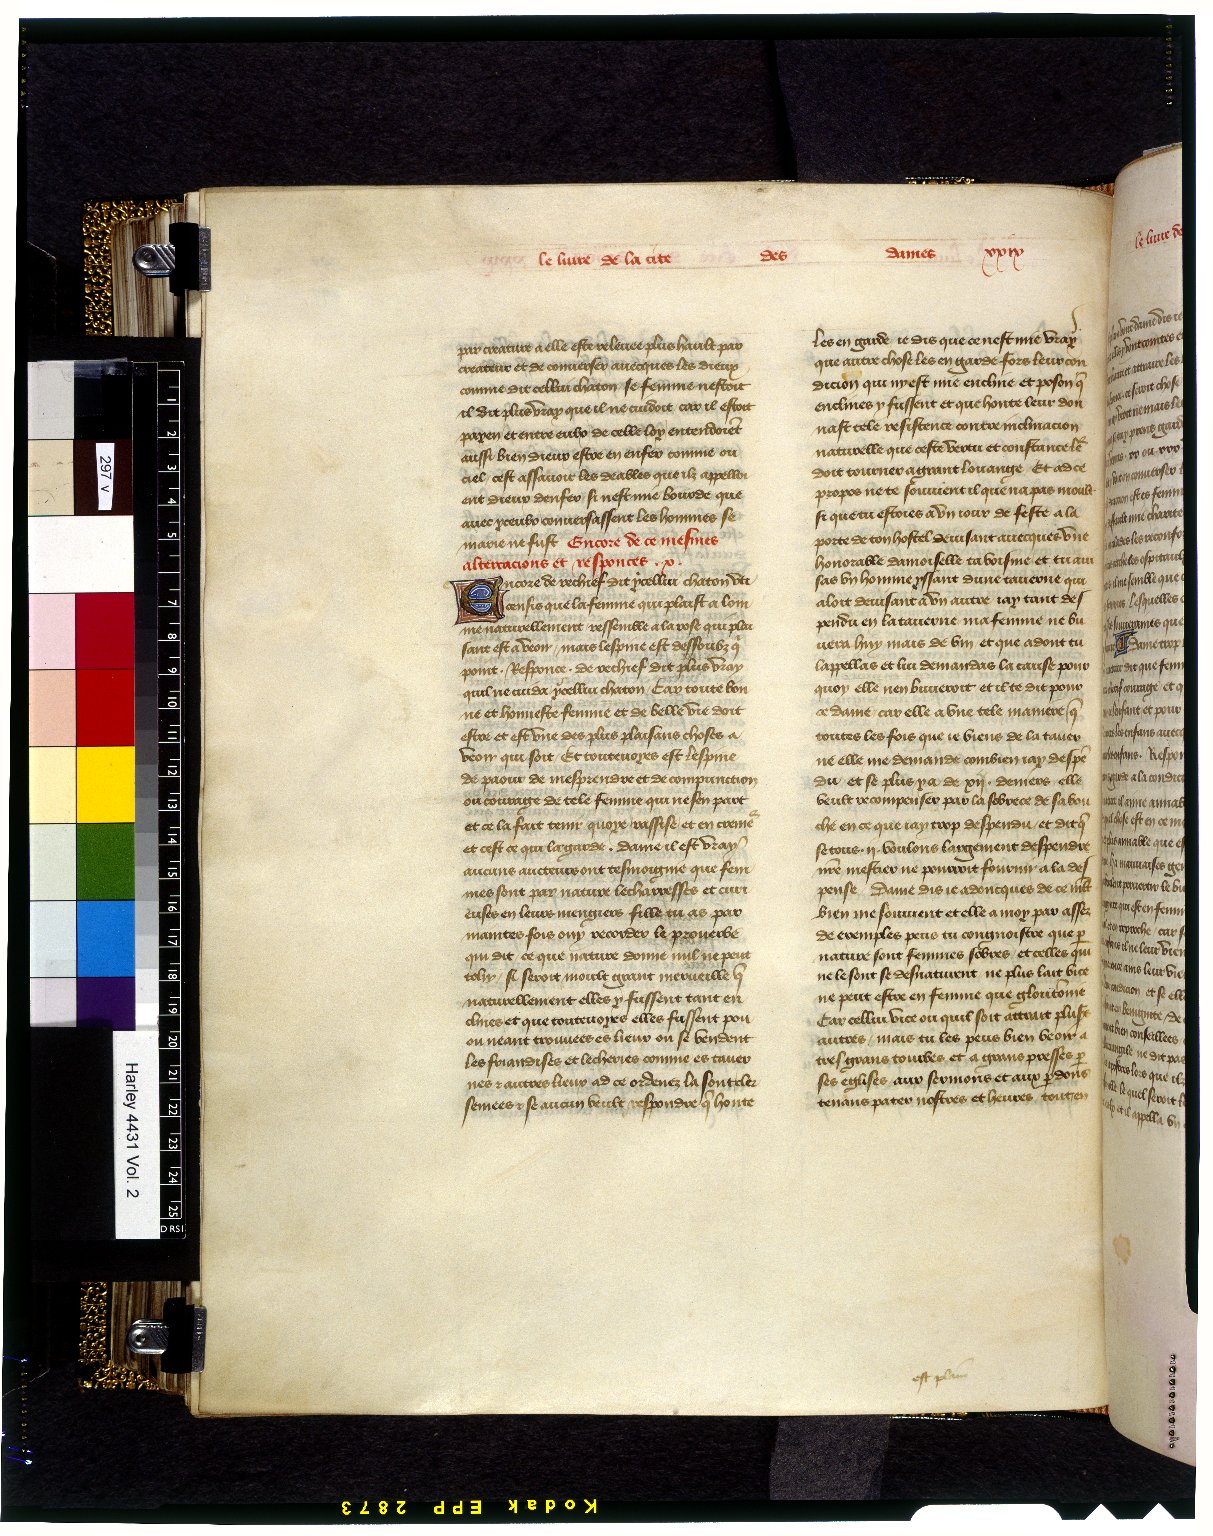 le livre de la cite des dames xxix
par creature a elle estre relevee plus hault par
createur et de converser avecques les dieux
comme dit cellui chaton se femme nestoit
il dit plus vray que il ne cuidoit car il estoit
payen et entre eulx de celle loy entendoiẽt
aussi bien dieux estre en enfer comme ou
ciel cest assavoir les deables que ilz appelloi
ent dieux denfer si nest mie bourde que
avec yceulx conversassent les hommes se
marie ne fust Encore de ce mesmes
altercacions et responces . x .
Encore de rechief dit ycellui chaton vti
censis que la femme qui plaist a lom
me naturellement ressemble a la rose qui plai
sant est a veoir mais lespine est dessoubz q̃
point . Responce . de rechief dit plus vray
quil ne cuida ycellui chaton Car toute bon
ne et honneste femme et de belle vie doit
estre et est vne des plus plaisans choses a
veoir qui soit Et toutevoyes est lespine
de paour de mesprendre et de compunction
ou courage de tele femme qui ne sen part
et ce la fait tenir quoye rassise et en creme~
et cest ce qui la garde . Dame il est vray
aucuns aucteurs ont tesmoigne que fem
mes sont par nature lecharresses et curi
euses en leurs mengiers fille tu as par
maintes fois ouy recorder le proverbe
qui dit ce que nature donne nul ne peut
tolir si seroit moult grant merveille q̃
naturellement elles y fussent tant en
clines et que toutevoyes elles fussent pou
ou neant trouvees es lieux ou se vendent
les friandises et lecheries comme es taver
nes ⁊ autres lieux ad ce ordenez la sont cler
semees ⁊ se aucun veult respondre q̃ honte
les en garde ie dis que ce nest mie vray
que autre chose les en garde fors leur con
dicion qui ny est mie encline et poson q̃
enclines y fussent et que honte leur don
nast tele resistence contre inclinacion
naturelle que ceste vertu et constance le~
doit tourner a grant louange Et ad ce
propos ne te souvient il que na pas moult
si que tu estoies a vn iour de feste a la
porte de ton hostel devisant avecques vne
honorable damoiselle ta voisine et tu avi
sas vn homme yssant dune taverne qui
aloit devisant a vn autre iay tant des
pendu en la taverne ma femme ne bu
vera huy mais de vin et que adont tu
lappellas et lui demandas la cause pour
quoy elle nen buveroit et il te dit pour
ce dame car elle a vne tele maniere q̃
toutes les fois que ie viens de la taver
ne elle me demande combien iay despẽ
du et se plus y a de xij . deniers elle
veult recompenser par la sobrece de sa bou
che en ce que iay trop despendu et dit q̃
se tous . ij . voulons largement despendre
nr̃e mestier ne pourroit fournir a la des
pense Dame dis ie adoncques de ce mlt
bien me souvient et elle a moy par assez
de exemples peus tu congnoistre que p
nature sont femmes sobres et celles qui
ne le sont se desnaturent ne plus lait vice
ne peut estre en femme que gloutonie
Car cellui vice ou quil soit attrait plus~
autres mais tu les peus bien veoir a
tres grans tourbes et a grans presses p
ses eglises aux sermons et aux pdons
tenans pater nostres et heures tout en
est plain
297 v
Harley 4431 Vol. 2
1
2
3
4
5
7
8
9
10
11
12
13
14
15
16
17
18
19
20
21
22
23
24
25
Kodak EPP 2873